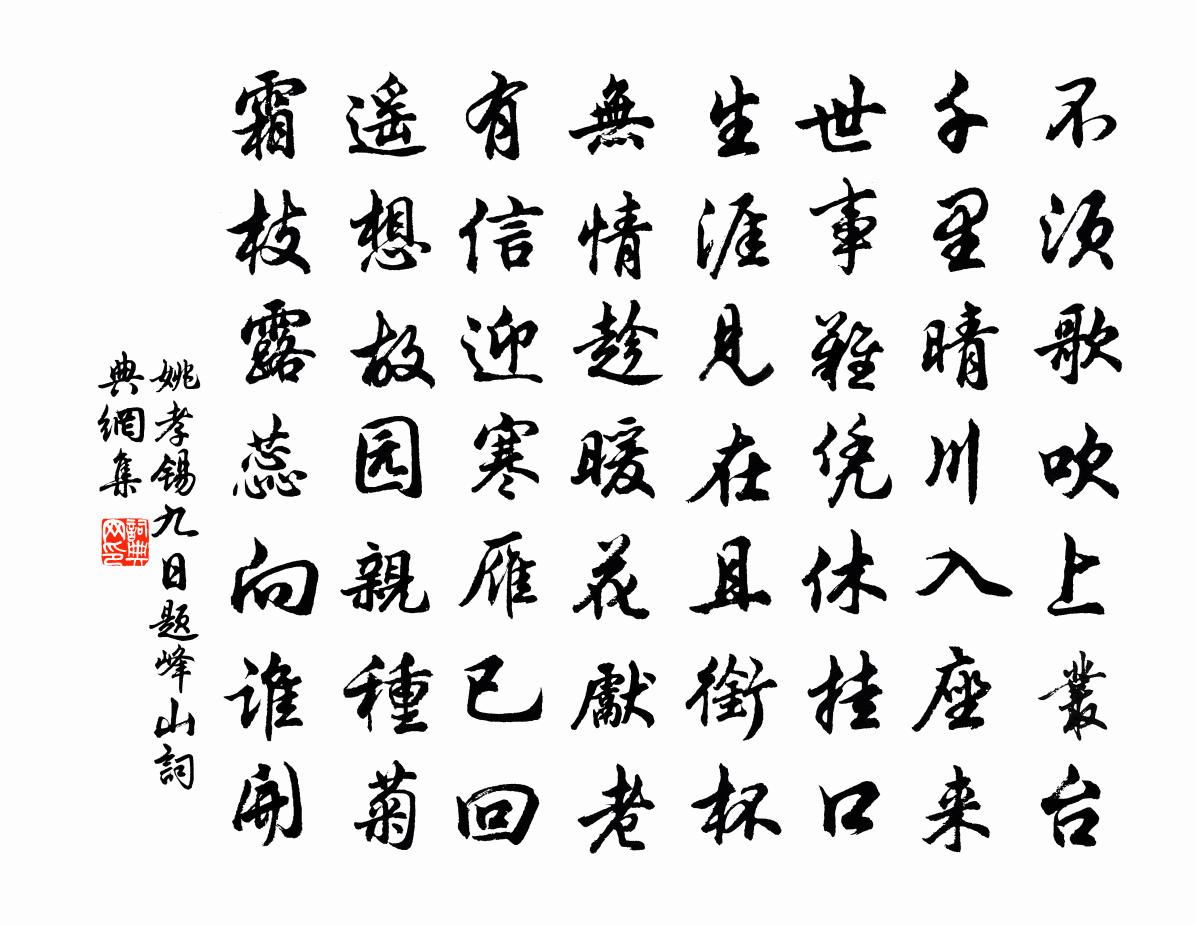 不须歌吹上叢台
千里晴川入座来
世事難凭休挂口
生涯見在且銜杯
無情趁暖花獻老
有信迎寒雁已回
遥想故园親種菊
霜枝露蕊向谁開
姚孝锡九日题峰山詞
典網集
詞典网印